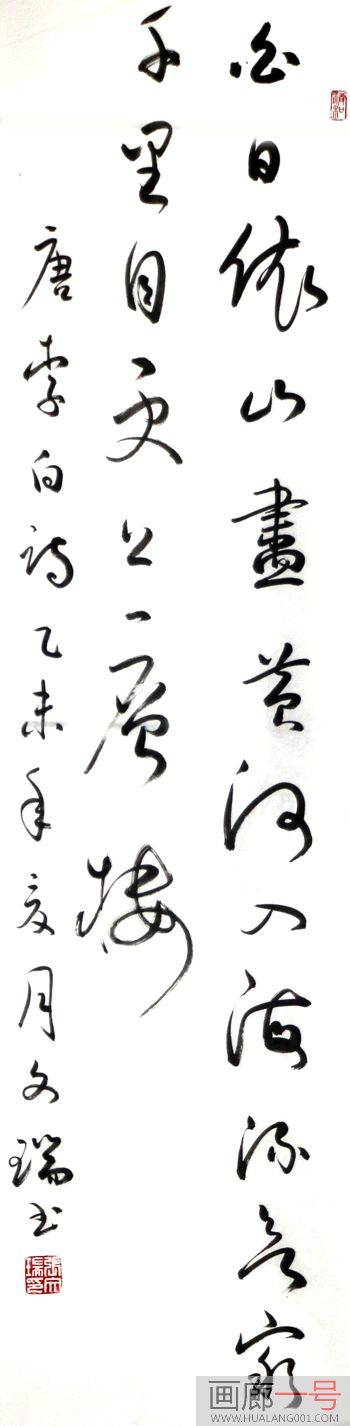 白日依山畫黄河入海流欲窮
千里目更上一層樓
唐李白詩乙未年夏月文瑞书
張文瑞印
画廊一号
WWW.HUALANG001.COM